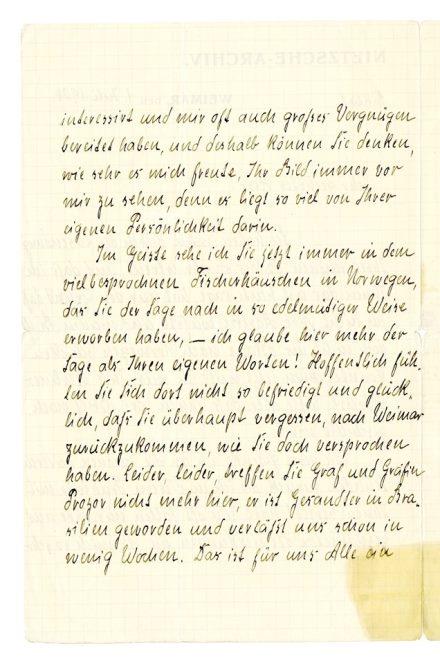 interessirt und mir oft auch großes Vergnügen
bereitet haben, und deshalb können Sie denken,
wie sehr es mich freute, Ihr Bild immer vor
mir zu sehen, denn es liegt so viel von Ihrer
eigenen Persönlichkeit darin.
Im Geiste sehe ich Sie jetzt immer in dem
vielbesprochnen Fischerhäuschen in Norwegen,
das Sie der Sage nach in so edelmütiger Weise
erworben haben, — ich glaube hier mehr der
Sage als Ihren eigenen Worten! Hoffentlich füh-
len Sie Sich dort nicht so befriedigt und glück-
lich, daſs Sie überhaupt vergessen, nach Weimar
zurückzukommen, wie Sie doch versprochen
haben. Leider, leider, treffen Sie Graf und Gräfin
Prozor nicht mehr hier, er ist Gesandter in Bra-
silien geworden und verläſst uns schon in
wenig Wochen. Das ist für uns Alle ein
NIETZSCHE-ARCHIV.
WEIMAR, DEN